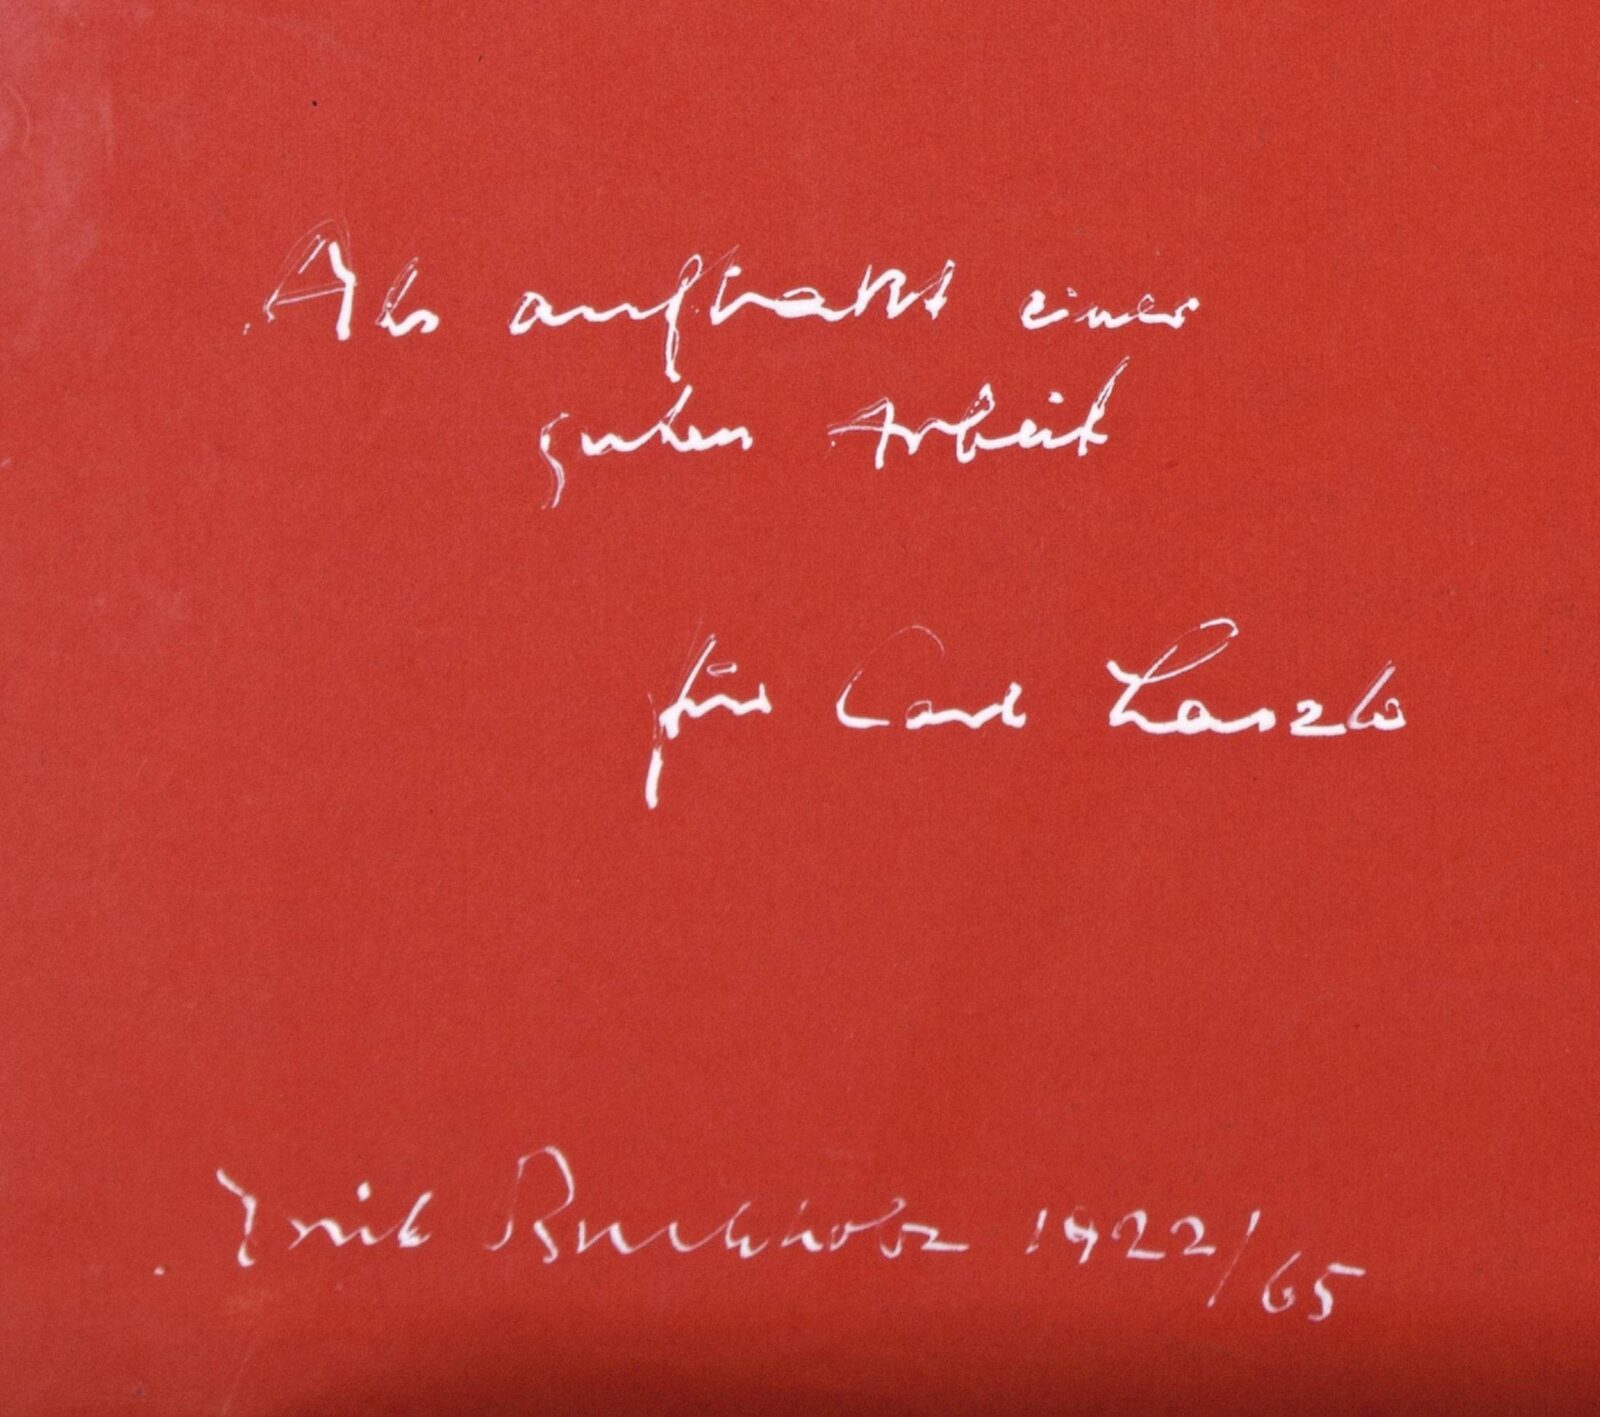 Als auftakt einer
guten Arbeit
für Carl Laszlo
Erich Buchholz 1922/65